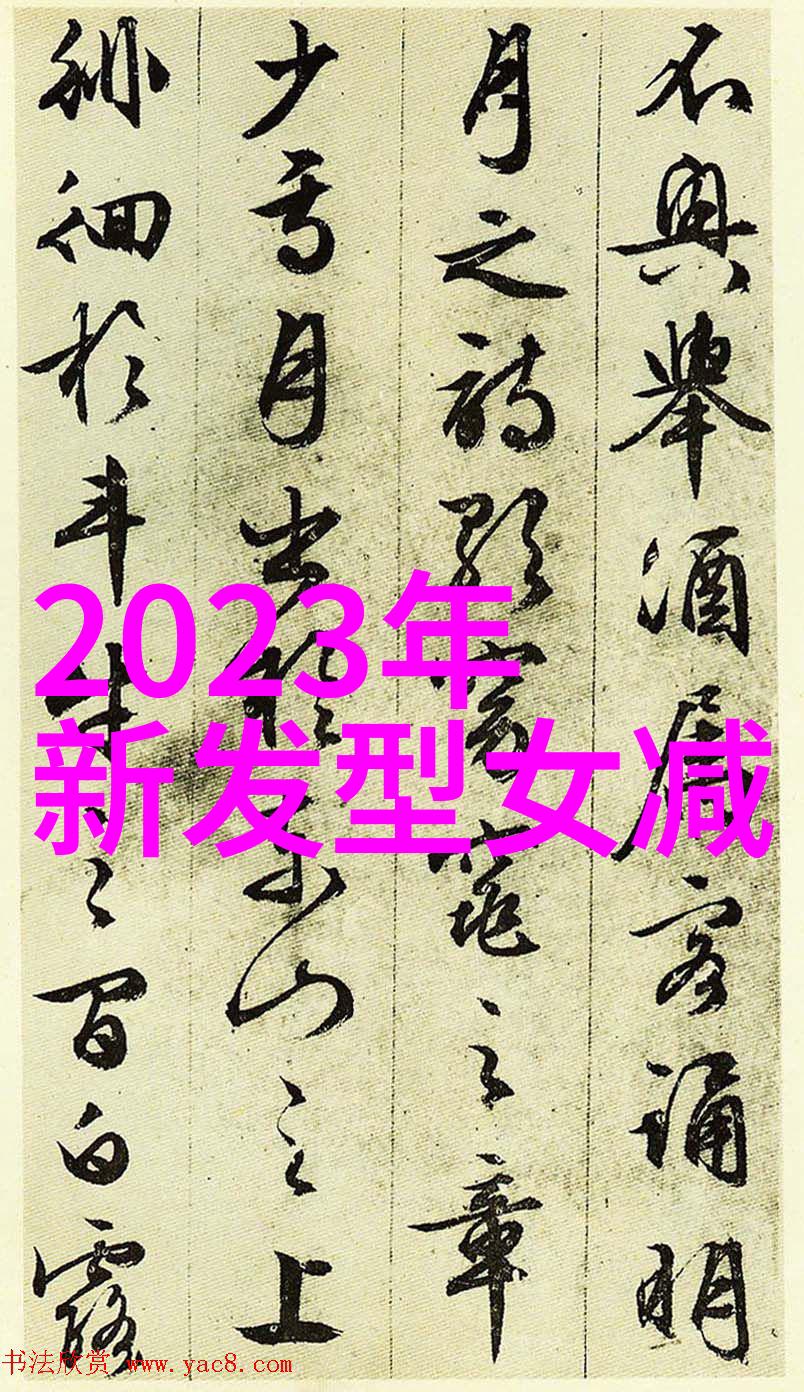 不興舉酒屬客誦明
月之詩歌窈窕之章
少焉月出於東山之上
徘徊於斗牛之間白露
2023年
新发型女减
书法欣赏 www.yac8.com